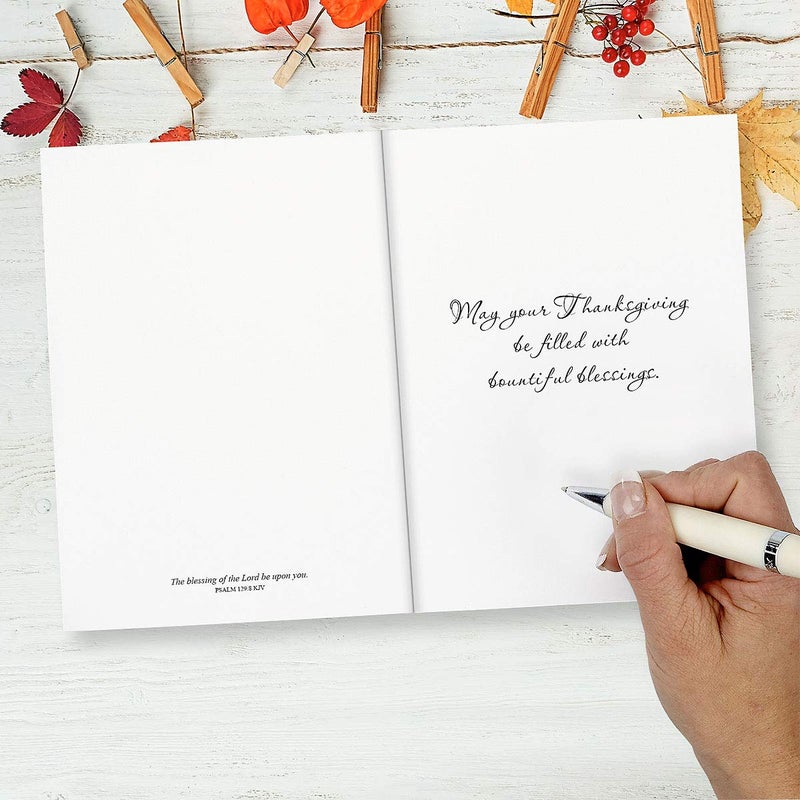 The blessing of the Lord be upon you.
PSALM 129:8 KJV
May your Thanksgiving
be filled with
bountiful blessings.